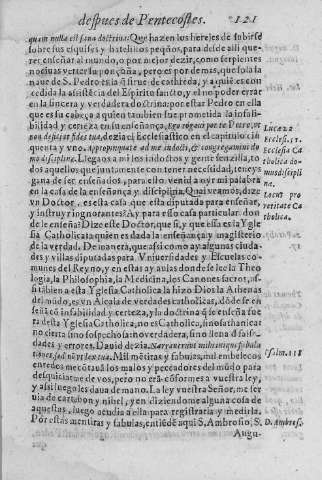 despues de Pentecostes. 121
quam nulla est sana doctrina: Que hazen los hereles de subirse
sobre sus esquifes y batelinos pequños, para desde alli que-
rer enseñar al mundo, o por mejor dezir, como serpientes
nociuas verter su ponçoña, pero es por demas, que sola la na-
ue de S. Pedro es la que sirue de cathedra, y a quien es con-
cedida la assistencia del Espiritu sancto, y el no poder errar
en la sincera y verdadera doctrina: por estar Pedro en ella
que es su cabeça a quien tambien fue prometida la infali-
bilidad y certeza en su enseñança, Ego rogaui pro te Petre, vt
non deficiat fides tua, dezia el Ecclesiastico en el capitulo cin-
quenta y vno. appropinquate ad me indocti, & congregamini do
mo disciplinæ. Llegaos a mi los indoctos y gente senzilla, to
dos aquellos que juntamente con tener necessidad, teneys
gana de ser enseñados, para ello venid a oyr mi palabra
en la casa de la enseñança y disciplina. Que aiuemos, dize
vn Doctor, es esta casa que esta diputada para enseñar,
y instruyr ignorantes? Ay para esso casa particular don
de le enseña? Dize este Doctor, que si, y que essa es la Ygle
sia Catholica a quien es dada la enseñança y magisterio
de la verdad. De manera, que assi como ay algunas ciuda-
des y villas diputadas para Vniuersidades y Escuelas co-
munes del Reyno, y en estas ay aulas donde se lee la Theo
logia, la Philosophia, la Medicina, los Canones sacros, as-
si tābien a esta Yglesia Catholica la hizo Dios la Athenas
del mōdo, es vn Alcala de verdades catholicas, dōde se en
seña cō infalibilidad y certeza, y la doctrina que se enseña fue
ra desta Yglesia Catholica, no es Catholica, ni no sathanica:
no cierta sino sospechosa: no verdadera, sino llena de falsi-
dades y errores. Dauid dezia. Narrauerunt mihi iniqui fabula
tiones, sed non vt lex tua. Mil mētiras y fabulas, mil embelecos
enredos me cōtauā los malos y peccadores del mūdo para
desquiciarme de vos, pero no erā cōformes a vuestra ley,
y assi luego les daua de mano. La ley vuestra Señor, me ser
uia de cartabon y nibel, y en diziendome alguna cosa de
aquestas, luego acudia a ella para registrarla y medirla.
Por estas mentiras y fabulas, entiēde aqui S. Ambrosio, S.
Augu-
Luc. 22
Eccles. 51.
Ecclesia Ca
tholica do
mus discipli
næ.
Locus pro
veritate Ca
tholica.
Psalm. 118
D. Ambros.